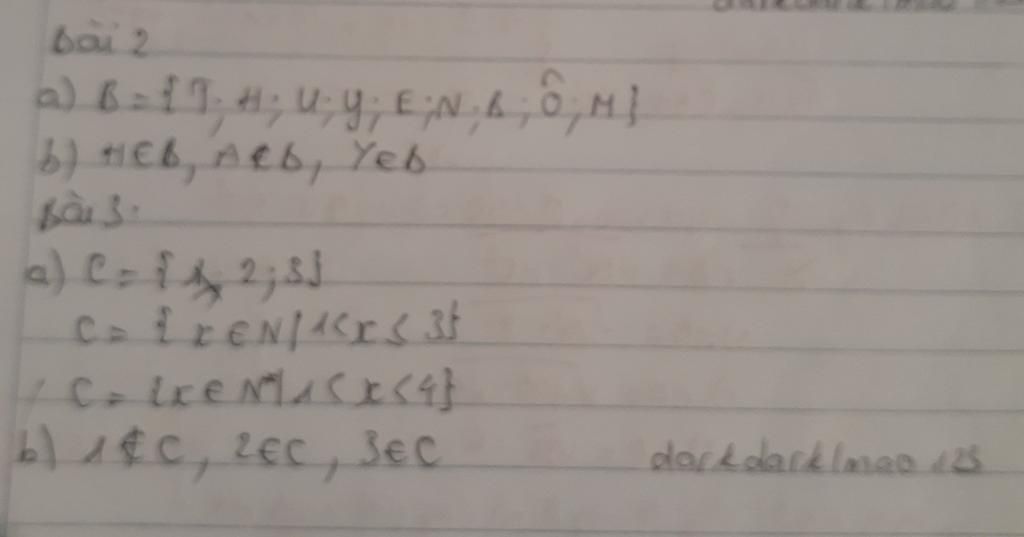 Bài 2
a) B = {T; H; U; Y; E; N; B; Ô; M}
b) H ∈ B, A ∉ B, Y ∈ B
Bài 3:
a) C = { 2; 3}
C = {x ∈ N | 1 < x ≤ 3}
C = {x ∈ N* | 1 < x < 4}
b) 1 ∉ C, 2 ∈ C, 3 ∈ C
darkdarklmao 123